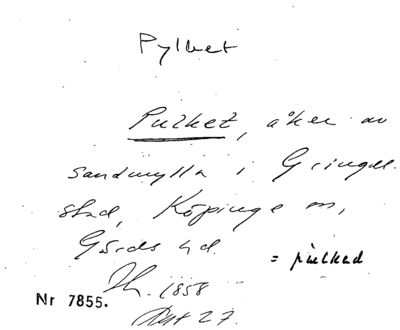 Pylket
Pulket, åker av
sandmylla i Gringel-
stad, Köpinge sn,
Gärds hd.
= pulked
Jh. 1858
Nr 7855.
27.